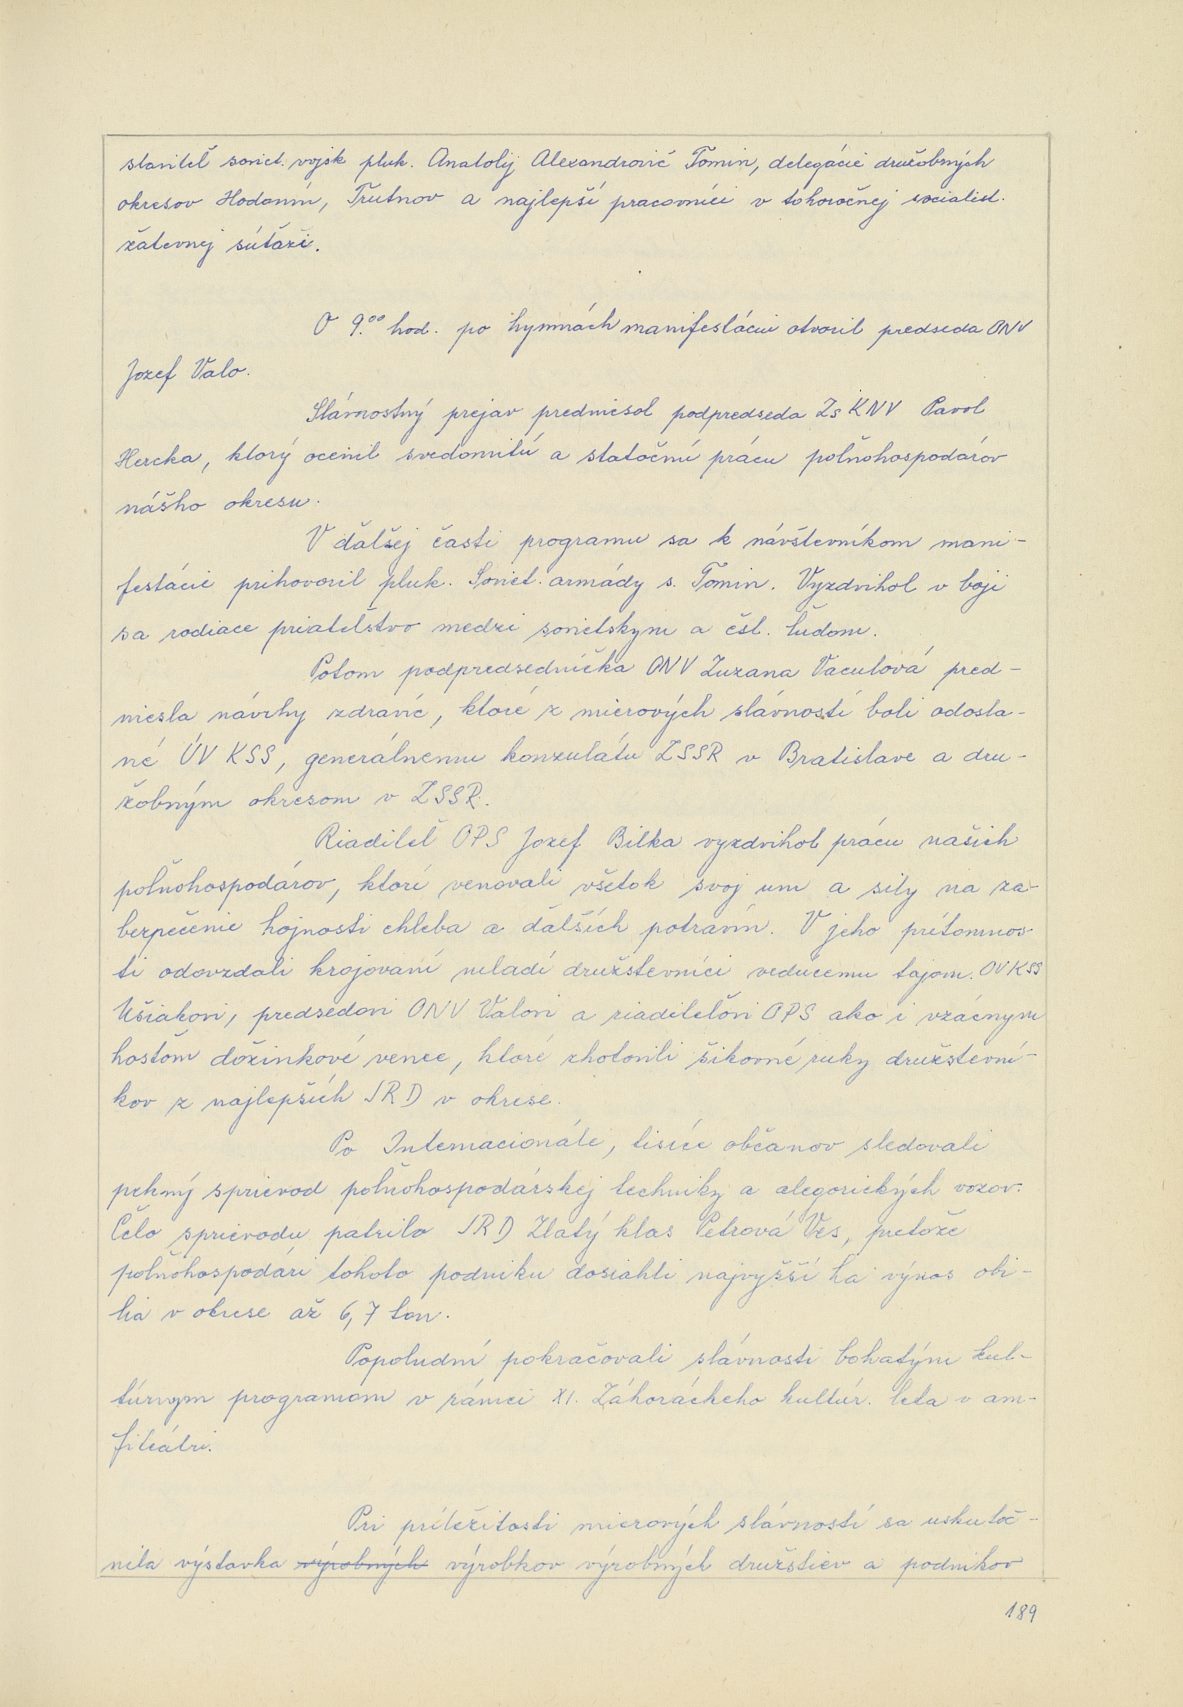 staviteľ soviet. vojsk pluk. Anatolij Alexandrovič Tomin, delegácie družobných
okresov Hodonín, Trutnov a najlepší pracovníci v tohoročnej socialist.
žatevnej súťaži.
O 9.00 hod. po hymnách manifestáciu otvoril predseda ONV
Jozef Valo.
Slávnostný prejav predniesol podpredseda ZsKNV Pavol
Hercka, ktorý ocenil svedomitú a statočnú prácu poľnohospodárov
nášho okresu.
V ďalšej časti programu sa k návštevníkom mani-
festácie prihovoril pluk. Soviet. armády s. Tomin. Vyzdvihol v boji
sa rodiace priateľstvo medzi sovietskym a čsl. ľudom.
Potom podpredsedníčka ONV Zuzana Vaculová pred-
niesla návrhy zdravíc, ktoré z mierových slávností boli odosla-
né ÚV KSS, generálnemu konzulátu ZSSR v Bratislave a dru-
žobným okresom v ZSSR.
Riaditeľ OPS Jozef Bilka vyzdvihol prácu našich
poľnohospodárov, ktorí venovali všetok svoj um a sily na za-
bezpečenie hojnosti chleba a ďalších potravín. V jeho prítomnos-
ti odovzdali krojovaní mladí družstevníci vedúcemu tajom. OV KSS
Ušiakovi, predsedovi ONV Valovi a riaditeľovi OPS ako i vzácnym
hosťom dožinkové vence, ktoré zhotovili šikovné ruky družstevní-
kov z najlepších JRD v okrese.
Po Internacionále, tisíce občanov sledovali
pekný sprievod poľnohospodárskej techniky a alegorických vozov.
Čelo sprievodu patrilo JRD Zlatý klas Petrová Ves, pretože
poľnohospodári tohoto podniku dosiahli najvyšší ha výnos obi-
lia v okrese až 6,7 ton.
Popoludní pokračovali slávnosti bohatým kul-
túrnym programom v rámci XI. Záhoráckeho kultúr. leta v am-
fiteátri.
Pri príležitosti mierových slávností sa uskutoč-
nila výstavka výrobných výrobkov výrobných družstiev a podnikov
189